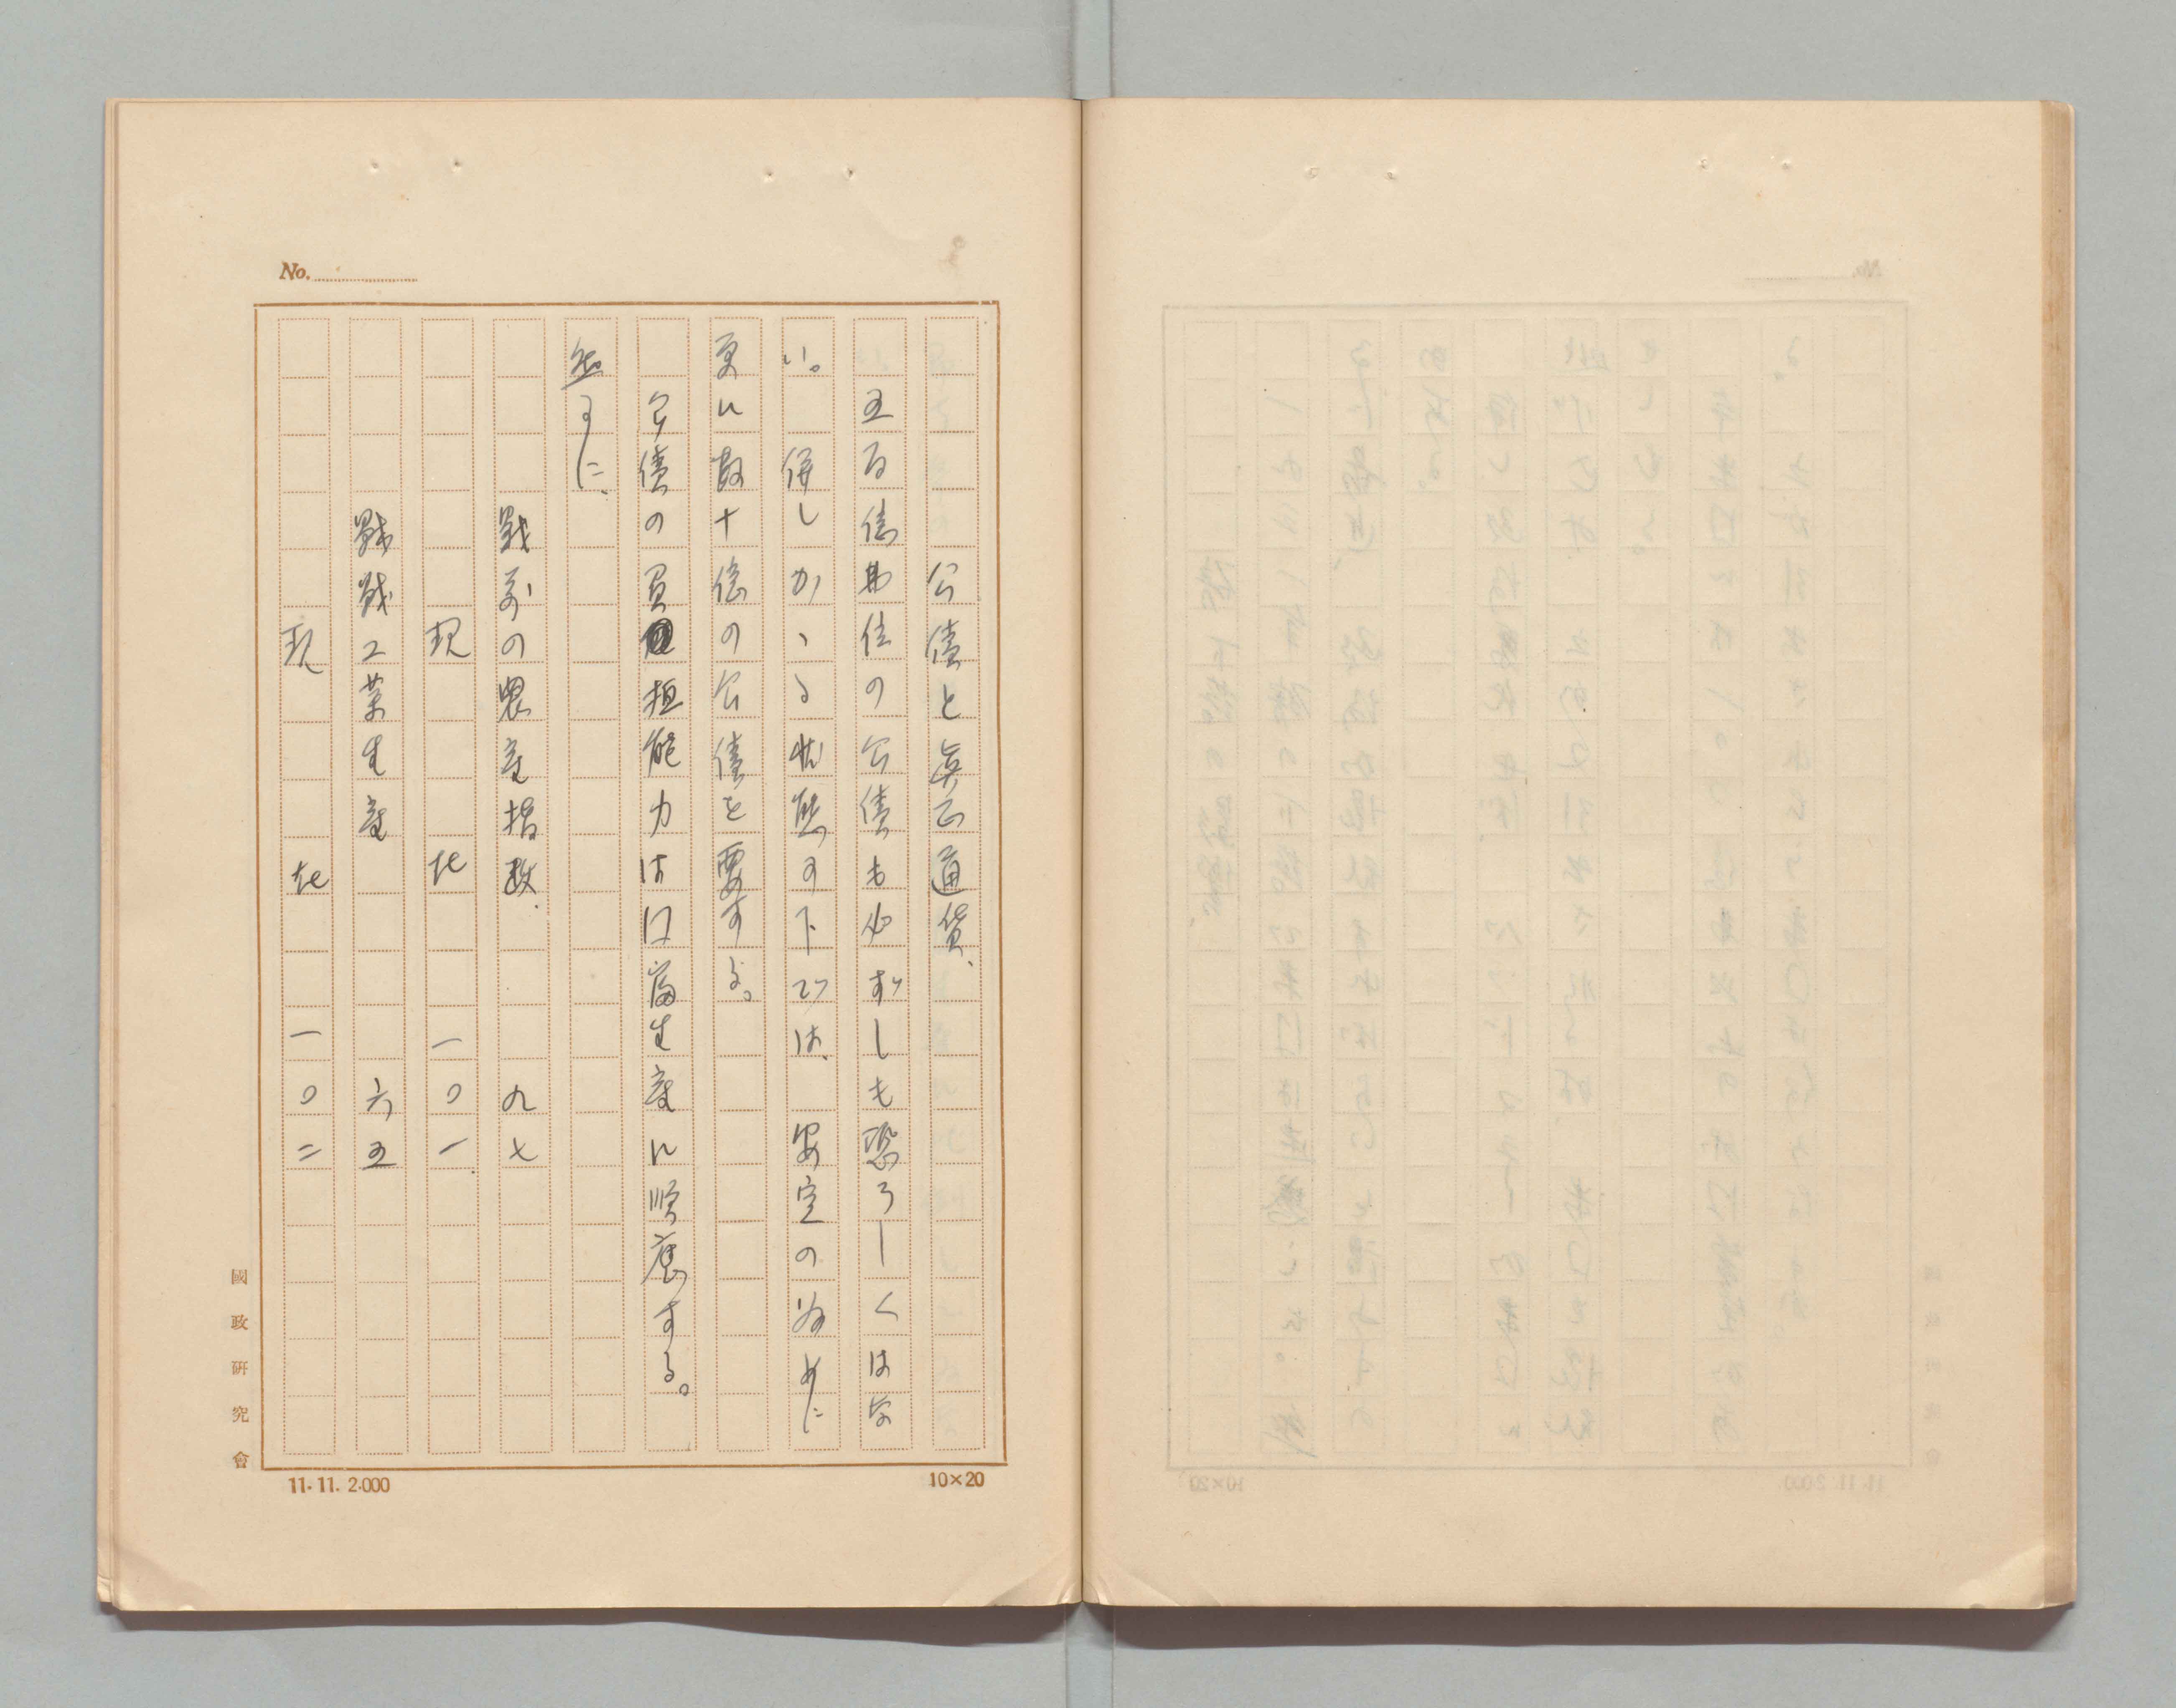 No.
公債と真正通貨、
五百億弗位の公債も必ずしも恐ろしくはな
い。併しかゝる状態の下では、安定の為めに
更に数十億の公債を要する。
公債の負担能力はは富生産に順應する。
然るに、
戦前の農産指数、九七
現在 一〇一
戦前工業生産 六五
現在 一〇二
國政研究會
11.11. 2.000
10×20